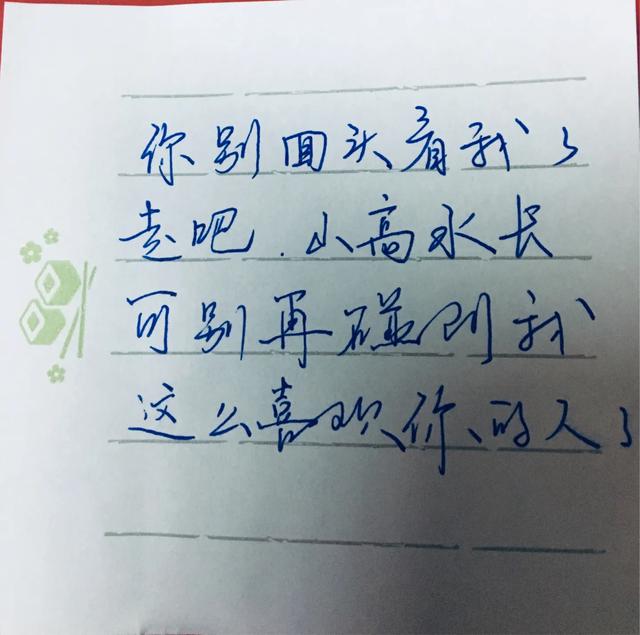 你别回头看我了
走吧.山高水长
可别再碰到我
这么喜欢你的人了